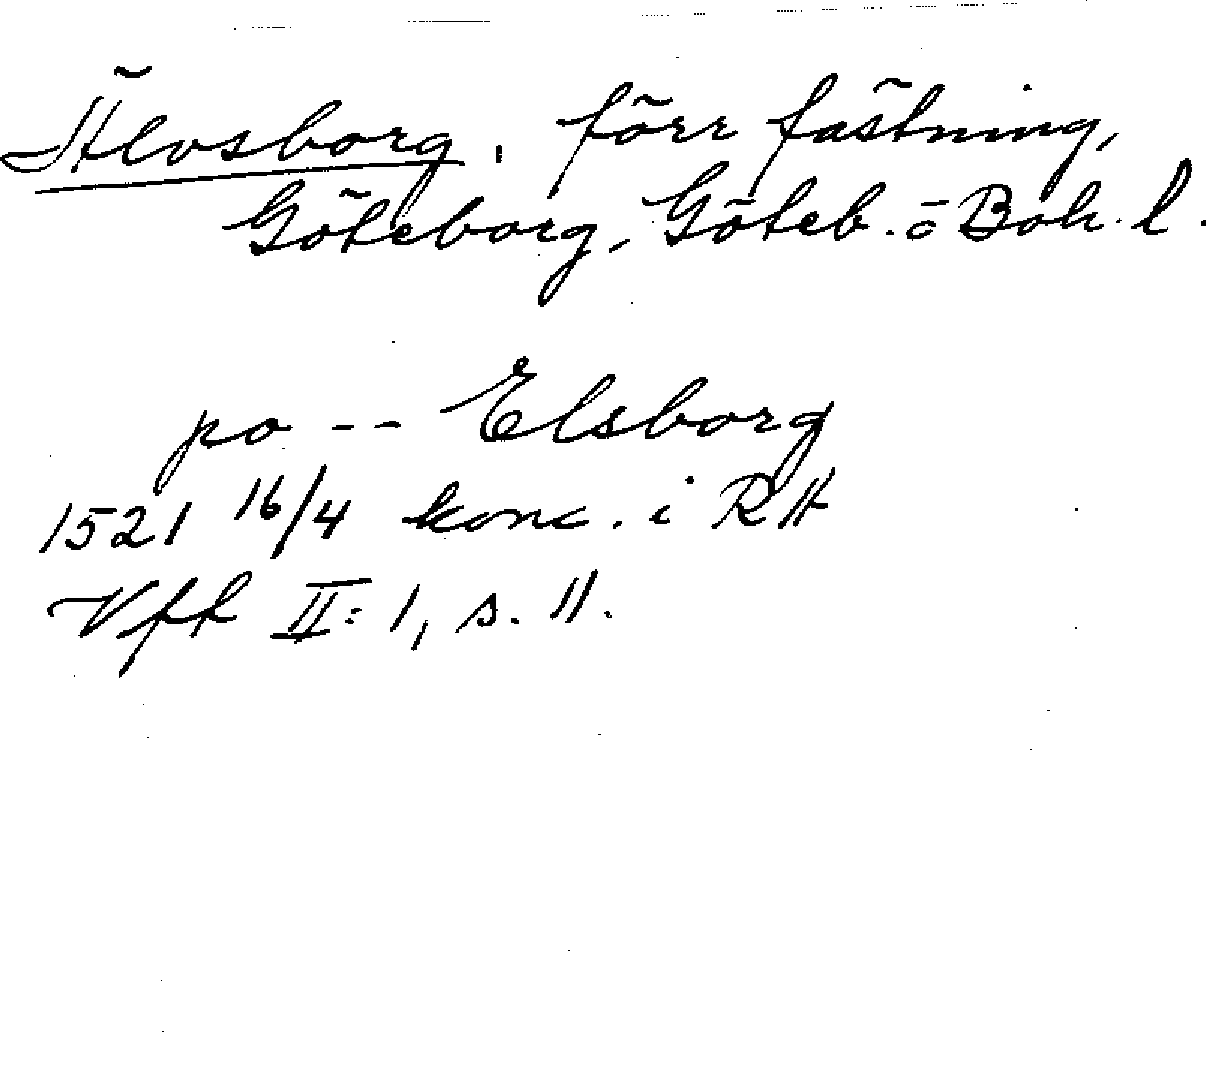 Älvsborg, förr fästning,
Göteborg, Göteb. o Boh. l.
po -- Elsborg
1521 16/4 konc. i RA
Vfk II: 1, s. 11.